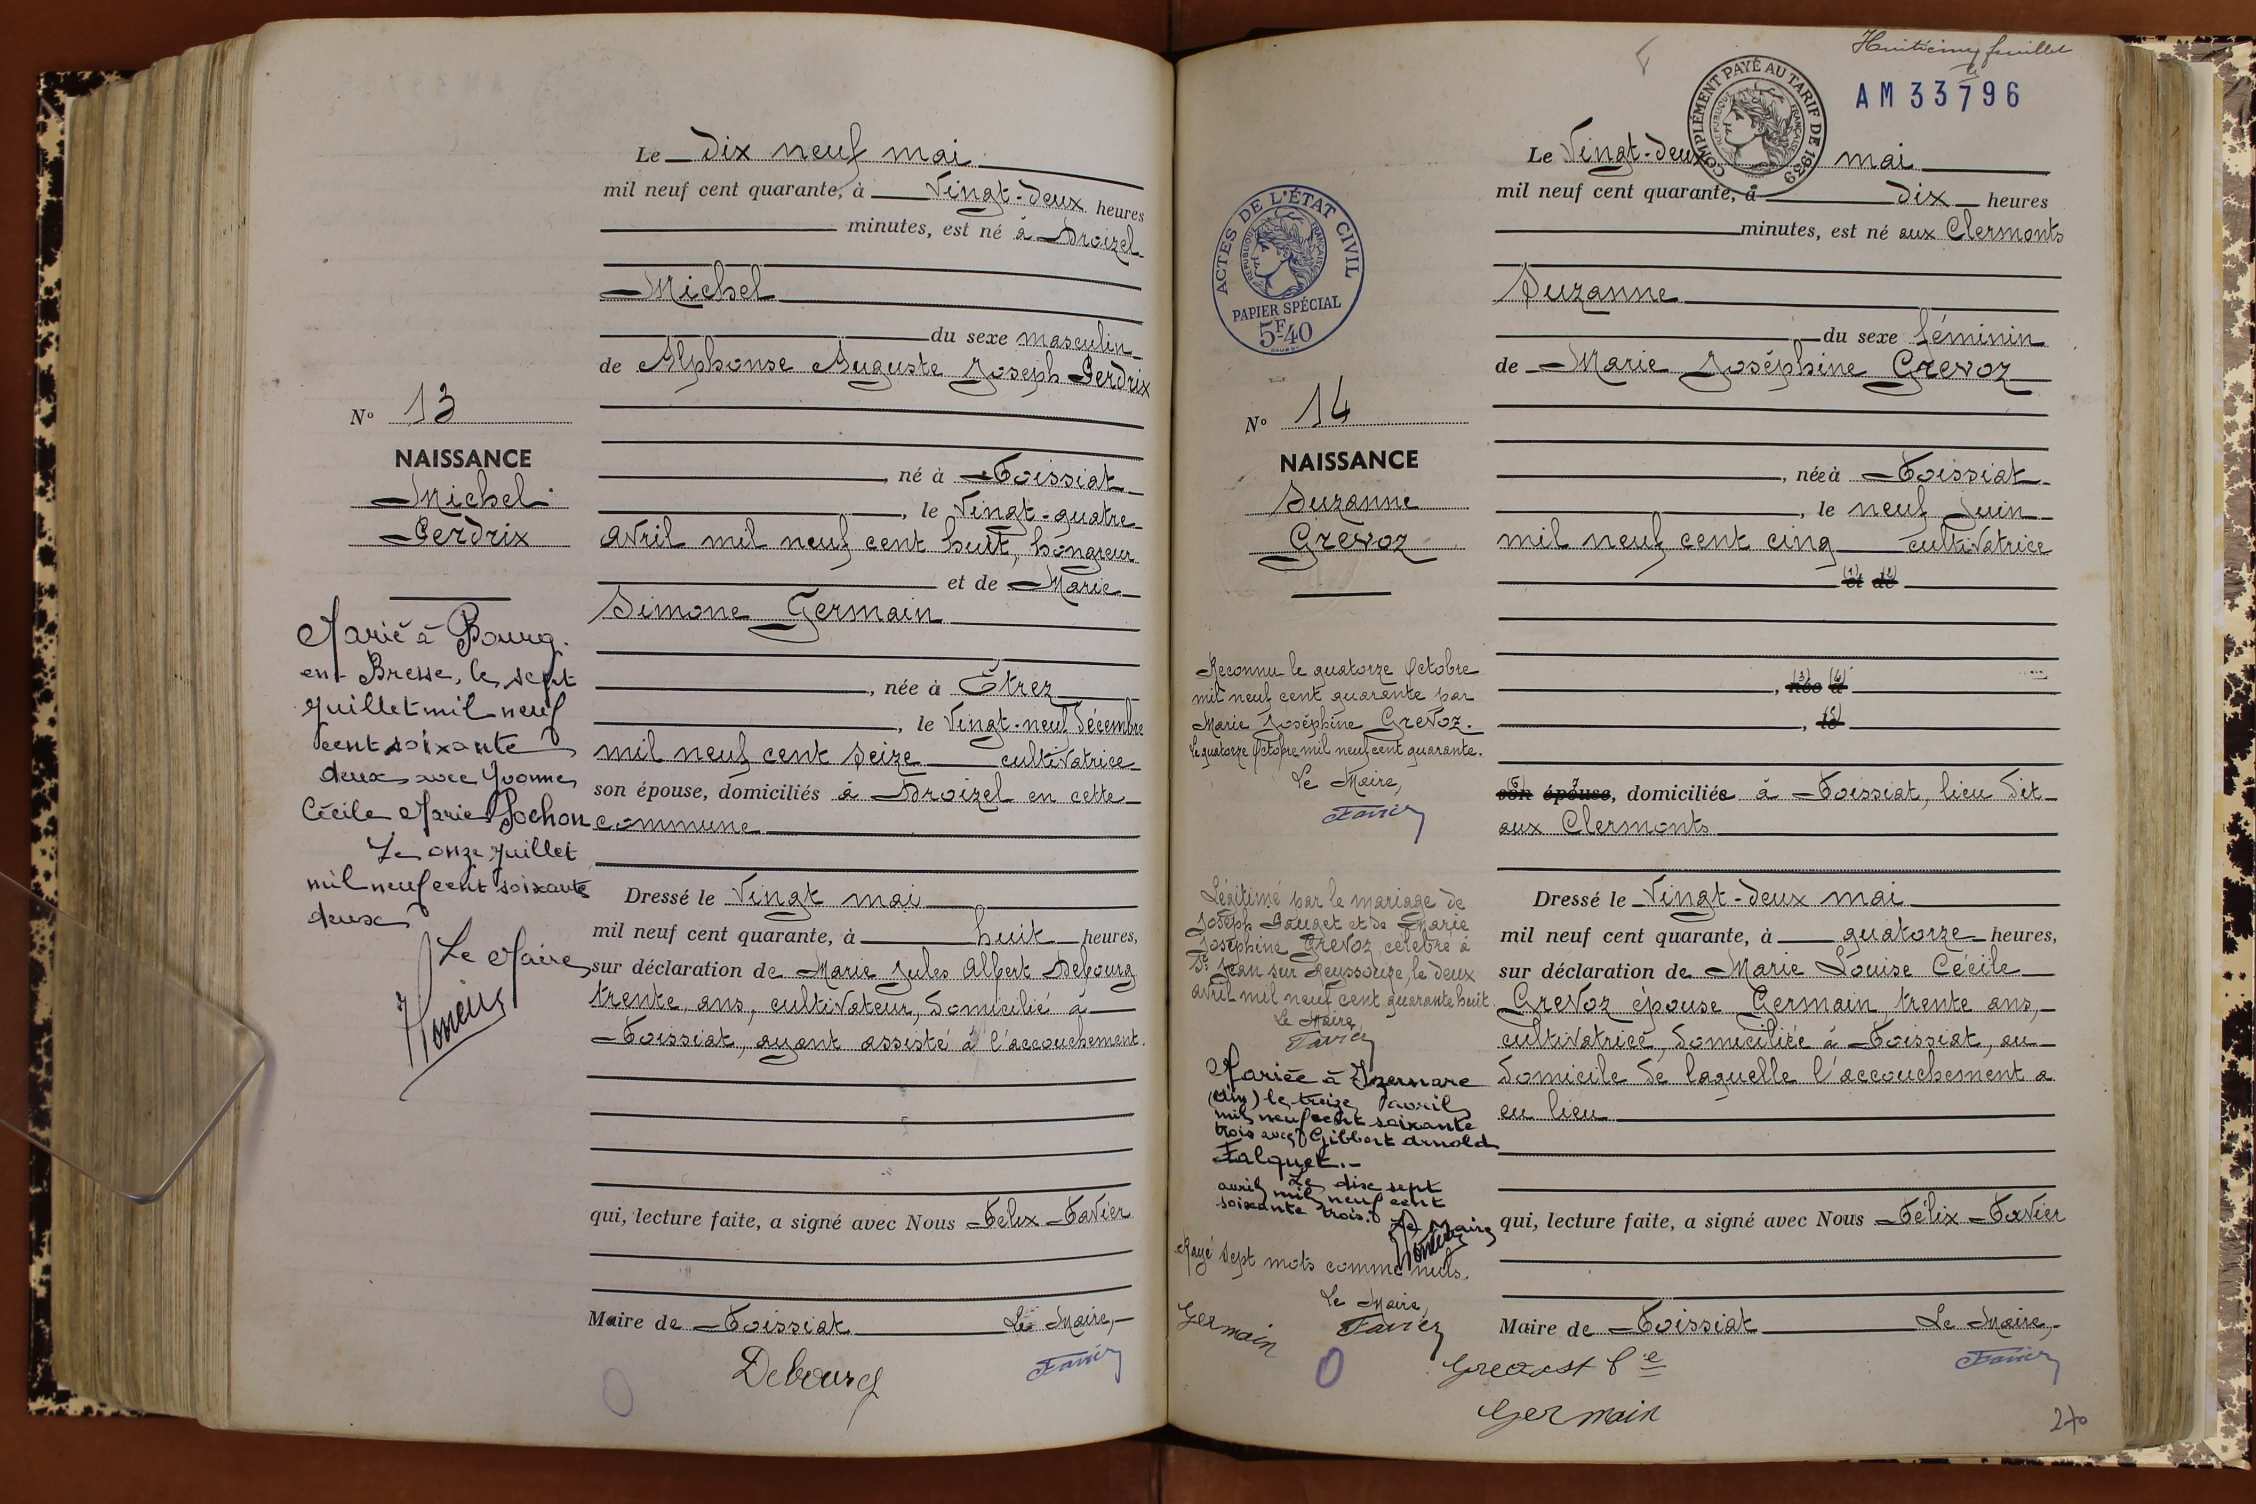 Le dix neuf mai
mil neuf cent quarante, à Vingt-deux heures
minutes, est né à Droizel
Michel
du sexe masculin
de Alphonse Auguste Joseph Perdrix
né à Foissiat
, le Vingt-quatre
avril mil neuf cent huit, hongreur
et de Marie
Simone Germain
, née à Étrez
, le Vingt-neuf décembre
mil neuf cent seize cultivatrice
son épouse, domiciliés à Droizel en cette
commune
Dressé le Vingt mai
mil neuf cent quarante, à huit heures,
sur déclaration de Marie Jules Albert Debourg
trente ans, cultivateur, domicilié à
Foissiat, ayant assisté à l'accouchement.
qui, lecture faite, a signé avec Nous Félix Favier
Maire de Foissiat Le Maire,
Debourg
Favier
N° 13
NAISSANCE
Michel
Perdrix
Marié à Bourg-
en-Bresse, le sept
juillet mil neuf
cent soixante
deux avec Yvonne
Cécile Marie Pochon
Le onze juillet
mil neuf cent soixante
deux
Le Maire
Huitième feuillet
AM 33796
COMPLÉMENT PAYÉ AU TARIF DE 1939
RÉPUBLIQUE FRANÇAISE
ACTES DE L'ÉTAT CIVIL
RÉPUBLIQUE FRANÇAISE
PAPIER SPÉCIAL
5F40
Le Vingt-deux mai
mil neuf cent quarante, à dix heures
minutes, est né aux Clermonts
Suzanne
du sexe féminin
de Marie Joséphine Grevoz
, née à Foissiat
, le neuf juin
mil neuf cent cinq cultivatrice
(1) (2)
et de
(3) (4)
, née à
, le
son épouse, domiciliée à Foissiat, lieu dit
aux Clermonts
Dressé le Vingt-deux mai
mil neuf cent quarante, à quatorze heures,
sur déclaration de Marie Louise Cécile
Grevoz épouse Germain, trente ans,
cultivatrice, domiciliée à Foissiat, au
domicile de laquelle l'accouchement a
eu lieu
qui, lecture faite, a signé avec Nous Félix Favier
Maire de Foissiat Le Maire,
Favier
Germain
270
N° 14
NAISSANCE
Suzanne
Grevoz
Reconnu le quatorze Octobre
mil neuf cent quarante par
Marie Joséphine Grevoz.
Le quatorze Octobre mil neuf cent quarante.
Le Maire,
Favier
Légitimé par le mariage de
Joseph Pauget et de Marie
Joséphine Grevoz célébré à
St Jean sur Reyssouze, le deux
avril mil neuf cent quarante huit.
Le Maire,
Favier
Mariée à Izernore
(Ain) le treize avril
mil neuf cent soixante
trois avec Gilbert Arnold
Falquet.-
Le dix sept
avril mil neuf cent
soixante trois.
Le Maire
Rayé sept mots comme nuls.
Le Maire,
Favier
Germain